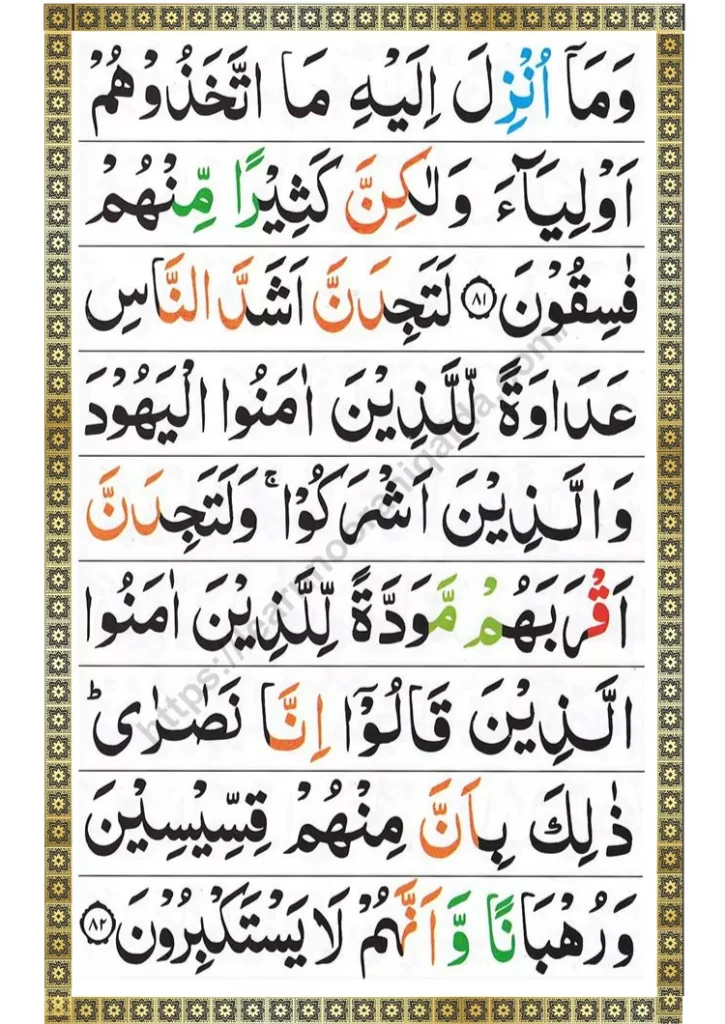 وَمَاۤ اُنْزِلَ اِلَيْهِ مَا اتَّخَذُوْهُمْ
اَوْلِيَآءَ وَلٰكِنَّ كَثِيْرًا مِّنْهُمْ
فٰسِقُوْنَ ﴿۸۱﴾ لَتَجِدَنَّ اَشَدَّ النَّاسِ
عَدَاوَةً لِّلَّذِيْنَ اٰمَنُوا الْيَهُوْدَ
وَالَّذِيْنَ اَشْرَكُوْا ۚ وَلَتَجِدَنَّ
اَقْرَبَهُمْ مَّوَدَّةً لِّلَّذِيْنَ اٰمَنُوا
الَّذِيْنَ قَالُوْۤا اِنَّا نَصٰرٰى ؕ
ذٰلِكَ بِاَنَّ مِنْهُمْ قِسِّيْسِيْنَ
وَرُهْبَانًا وَّاَنَّهُمْ لَا يَسْتَكْبِرُوْنَ ﴿۸۲﴾
https://learnnooraniqaida.com/